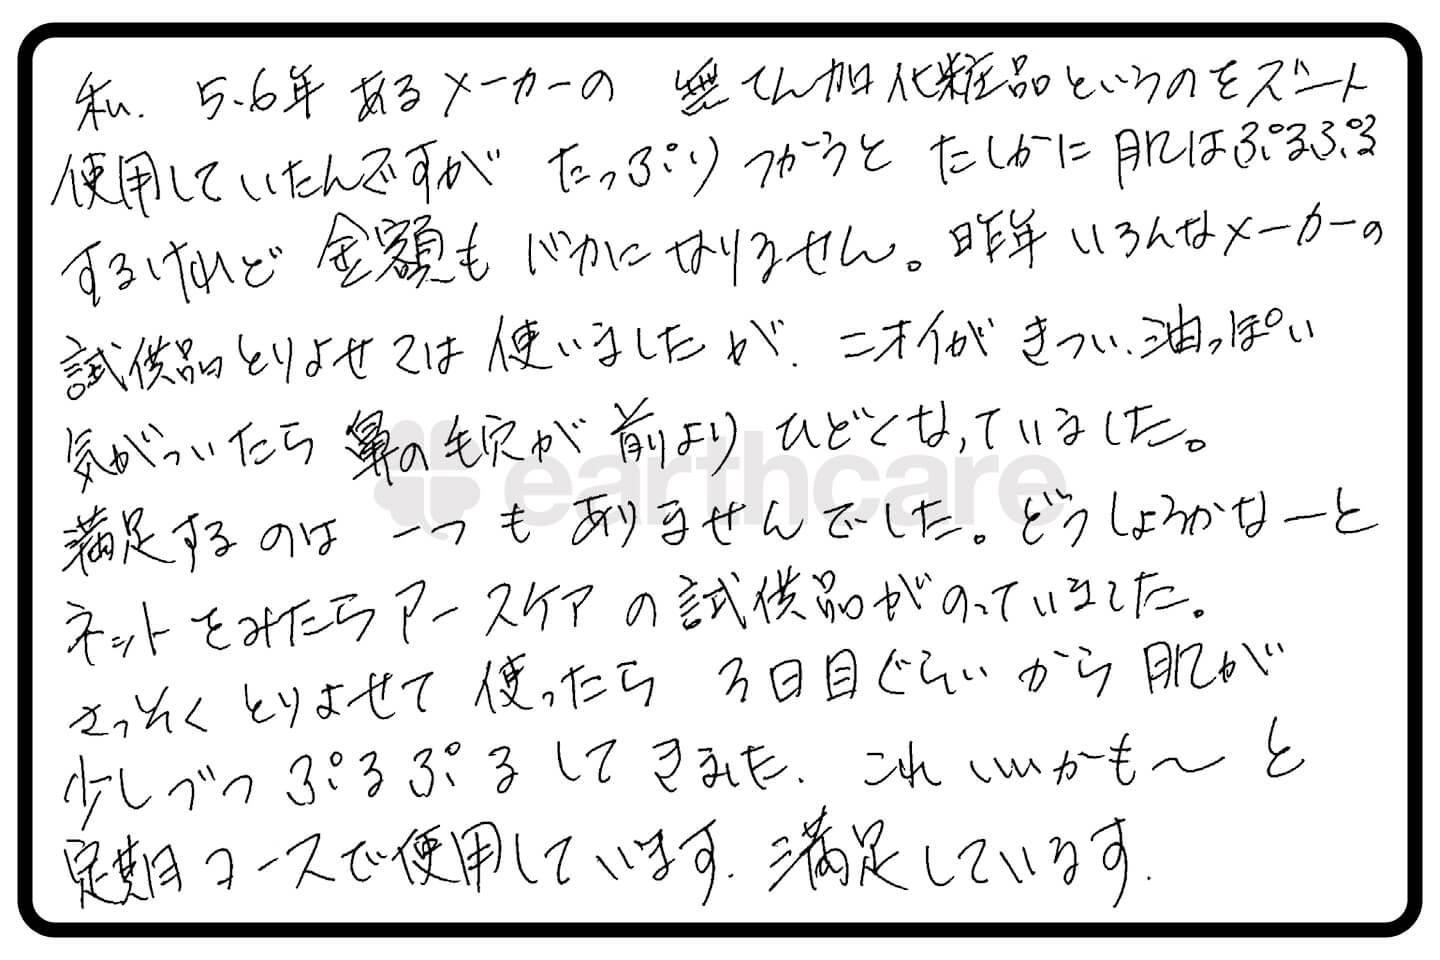 私、5、6年 あるメーカーの 無てん加化粧品というのをズート
使用していたんですが たっぷり つかうと たしかに 肌はぷるぷる
するけれど 金額も バカになりません。昨年 いろんなメーカーの
試供品とりよせては 使いましたが、ニオイが きつい、油っぽい
気がついたら 鼻の毛穴が 前より ひどくなっていました。
満足するのは 一つ も ありませんでした。どうしょうかなーと
ネットをみたらアースケア の試供品がのっていました。
さっそく とりよせて 使ったら 3日目ぐらい から 肌が
少しづつ ぷるぷる してきました、これ いいかも〜 と
定期コースで使用しています、満足しています.
earthcare